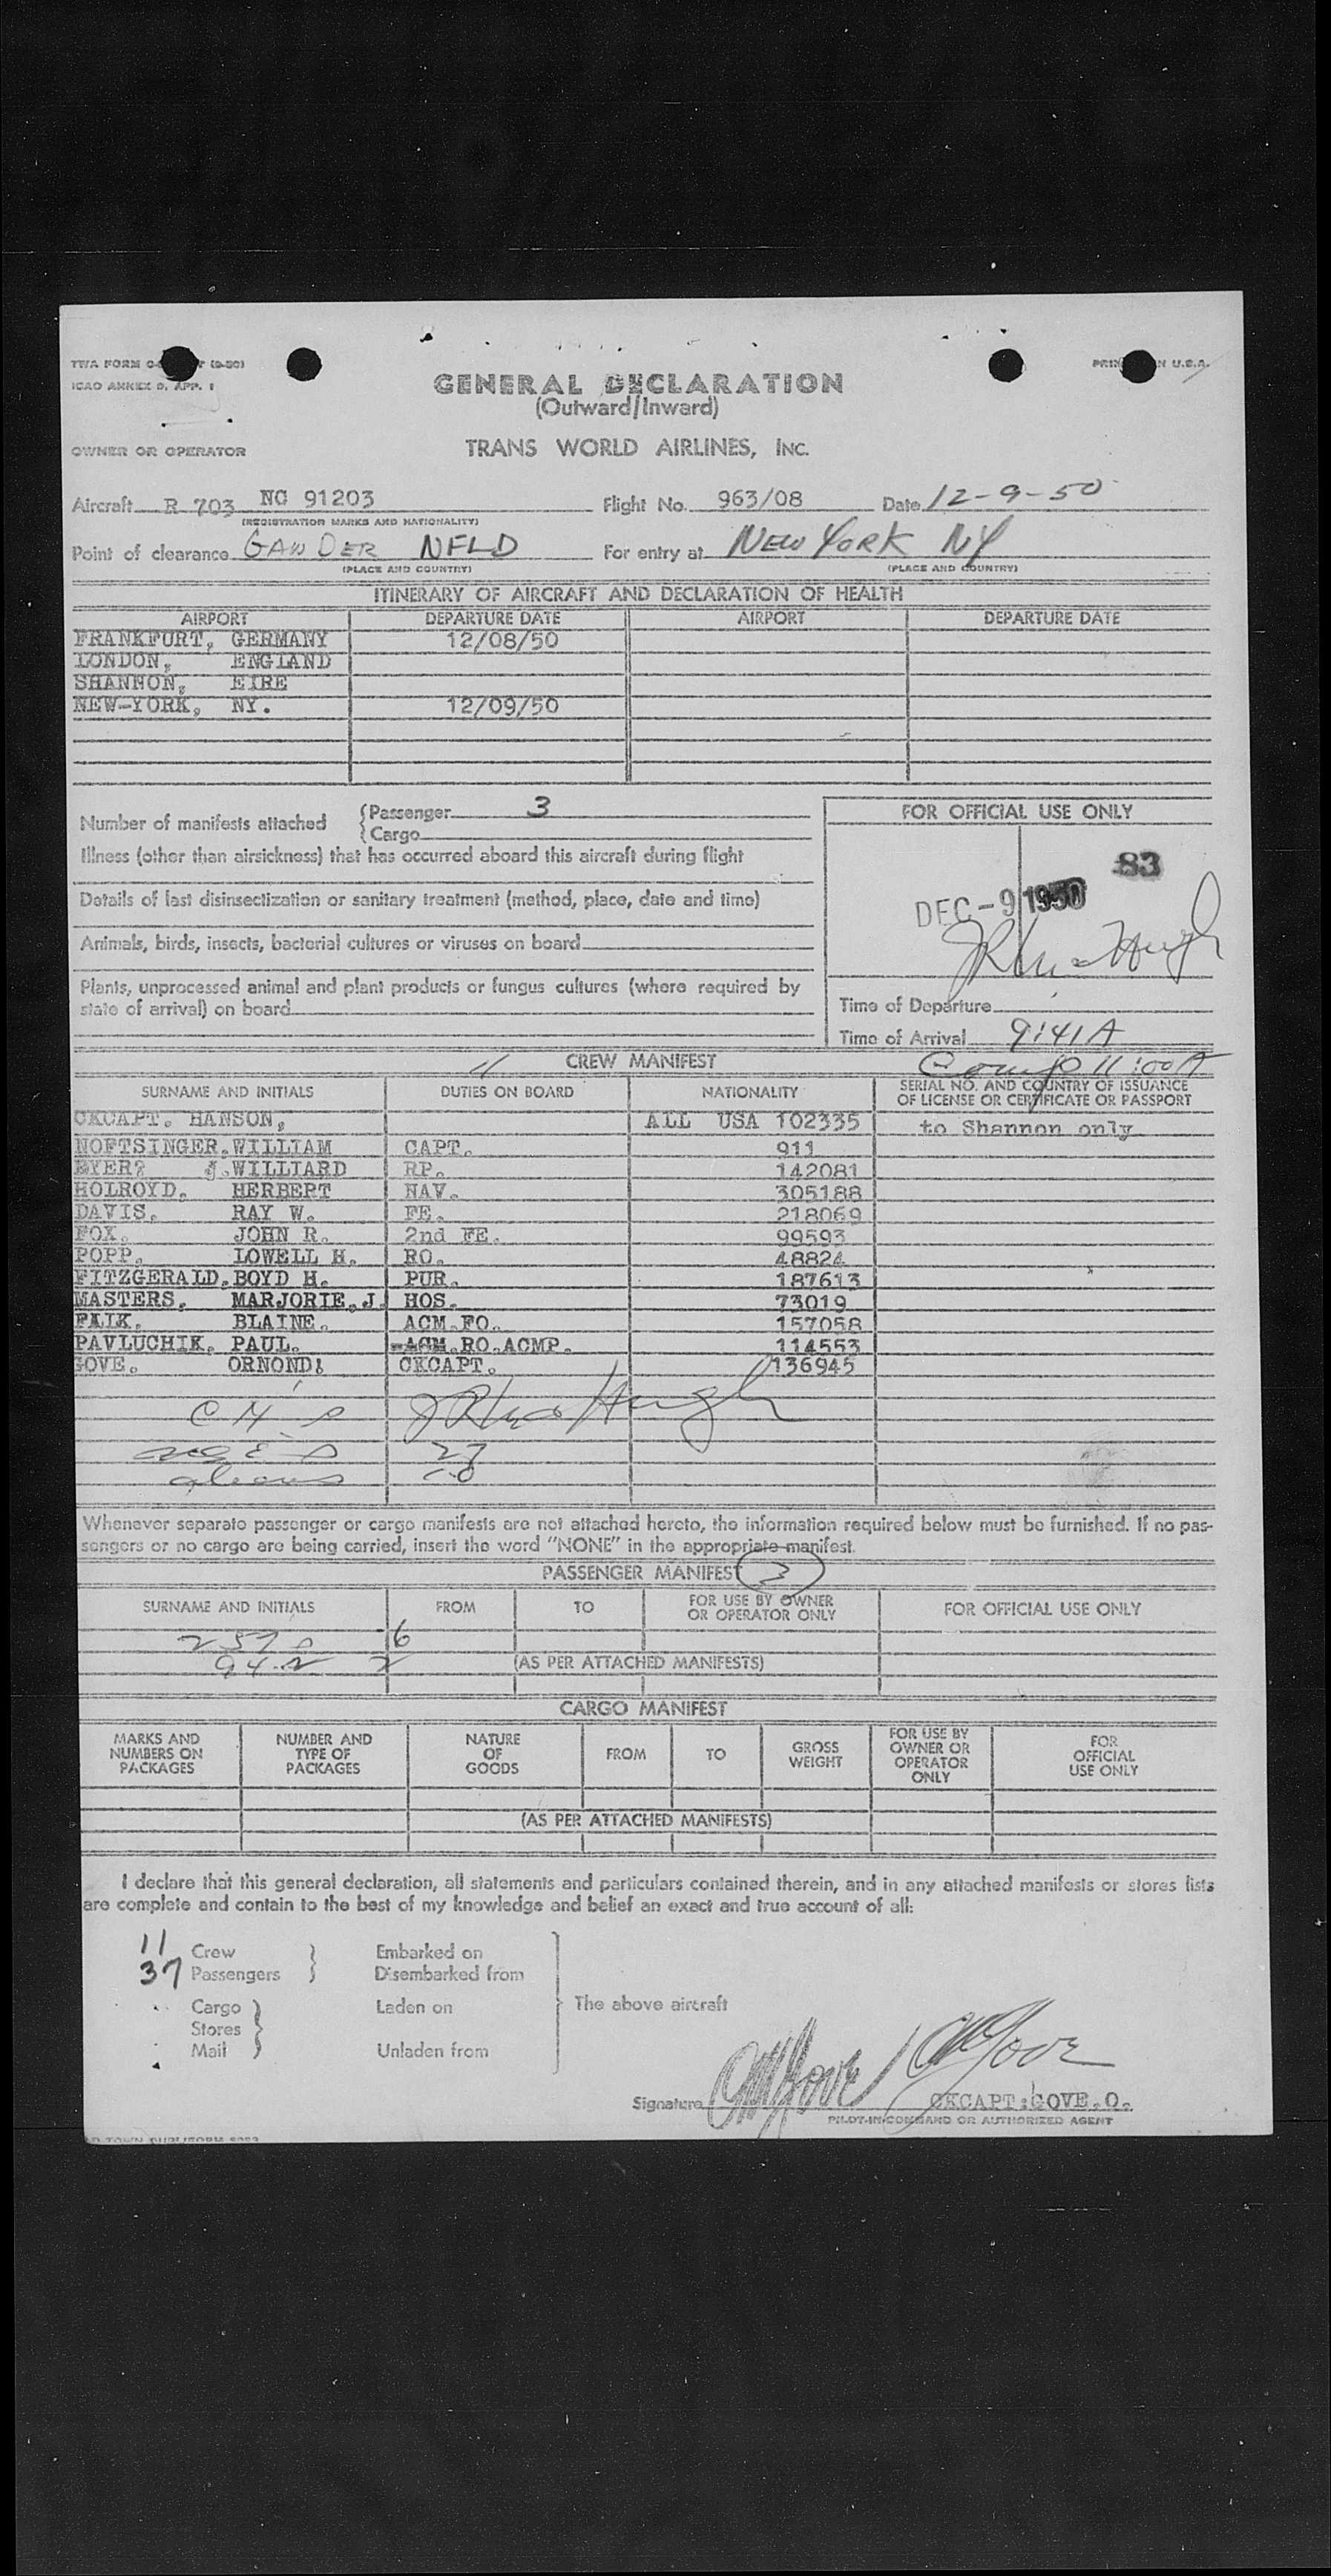 TWA FORM (9-50)
PRINTED IN U.S.A.
ICAO ANNEX 9, APP. 1
GENERAL DECLARATION
(Outward/Inward)
OWNER OR OPERATOR TRANS WORLD AIRLINES, INC.
Aircraft R 703 NC 91203 Flight No. 963/08 Date 12-9-50
(REGISTRATION MARKS AND NATIONALITY)
Point of clearance GANDER NFLD For entry at NEW YORK NY
(PLACE AND COUNTRY) (PLACE AND COUNTRY)
ITINERARY OF AIRCRAFT AND DECLARATION OF HEALTH
AIRPORT DEPARTURE DATE AIRPORT DEPARTURE DATE
FRANKFURT, GERMANY 12/08/50
LONDON, ENGLAND
SHANNON, EIRE
NEW-YORK, NY. 12/09/50
Number of manifests attached {Passenger 3
{Cargo
Illness (other than airsickness) that has occurred aboard this aircraft during flight
Details of last disinsectization or sanitary treatment (method, place, date and time)
Animals, birds, insects, bacterial cultures or viruses on board
Plants, unprocessed animal and plant products or fungus cultures (where required by
state of arrival) on board
FOR OFFICIAL USE ONLY
83
DEC-9 1950
Time of Departure
Time of Arrival 9:41A
11 CREW MANIFEST Comp 11:00A
SURNAME AND INITIALS DUTIES ON BOARD NATIONALITY SERIAL NO. AND COUNTRY OF ISSUANCE
OF LICENSE OR CERTIFICATE OR PASSPORT
CKCAPT. HANSON, ALL USA 102335 to Shannon only
NOFTSINGER.WILLIAM CAPT. 911
J.WILLIARD RP. 142081
HOLROYD. HERBERT NAV. 305188
DAVIS. RAY W. FE. 218069
FOX. JOHN R. 2nd FE. 99593
POPP. LOWELL H. RO. 48824
FITZGERALD.BOYD H. PUR. 187613
MASTERS. MARJORIE.J HOS. 73019
BLAINE. ACM.FO. 157058
PAVLUCHIK. PAUL. ACM.RO.ACMP. 114553
GOVE. ORNOND. CKCAPT. 136945
27
aliens 10
Whenever separate passenger or cargo manifests are not attached hereto, the information required below must be furnished. If no pas-
sengers or no cargo are being carried, insert the word "NONE" in the appropriate manifest.
PASSENGER MANIFEST 3
SURNAME AND INITIALS FROM TO FOR USE BY OWNER
OR OPERATOR ONLY FOR OFFICIAL USE ONLY
6
2 (AS PER ATTACHED MANIFESTS)
CARGO MANIFEST
MARKS AND
NUMBERS ON
PACKAGES NUMBER AND
TYPE OF
PACKAGES NATURE
OF
GOODS FROM TO GROSS
WEIGHT FOR USE BY
OWNER OR
OPERATOR
ONLY FOR
OFFICIAL
USE ONLY
(AS PER ATTACHED MANIFESTS)
I declare that this general declaration, all statements and particulars contained therein, and in any attached manifests or stores lists
are complete and contain to the best of my knowledge and belief an exact and true account of all:
11 Crew } Embarked on
37 Passengers } Disembarked from
Cargo } Laden on The above aircraft
Stores
Mail } Unladen from
Signature OMGove / OMGove CKCAPT:GOVE.O.
PILOT-IN-COMMAND OR AUTHORIZED AGENT